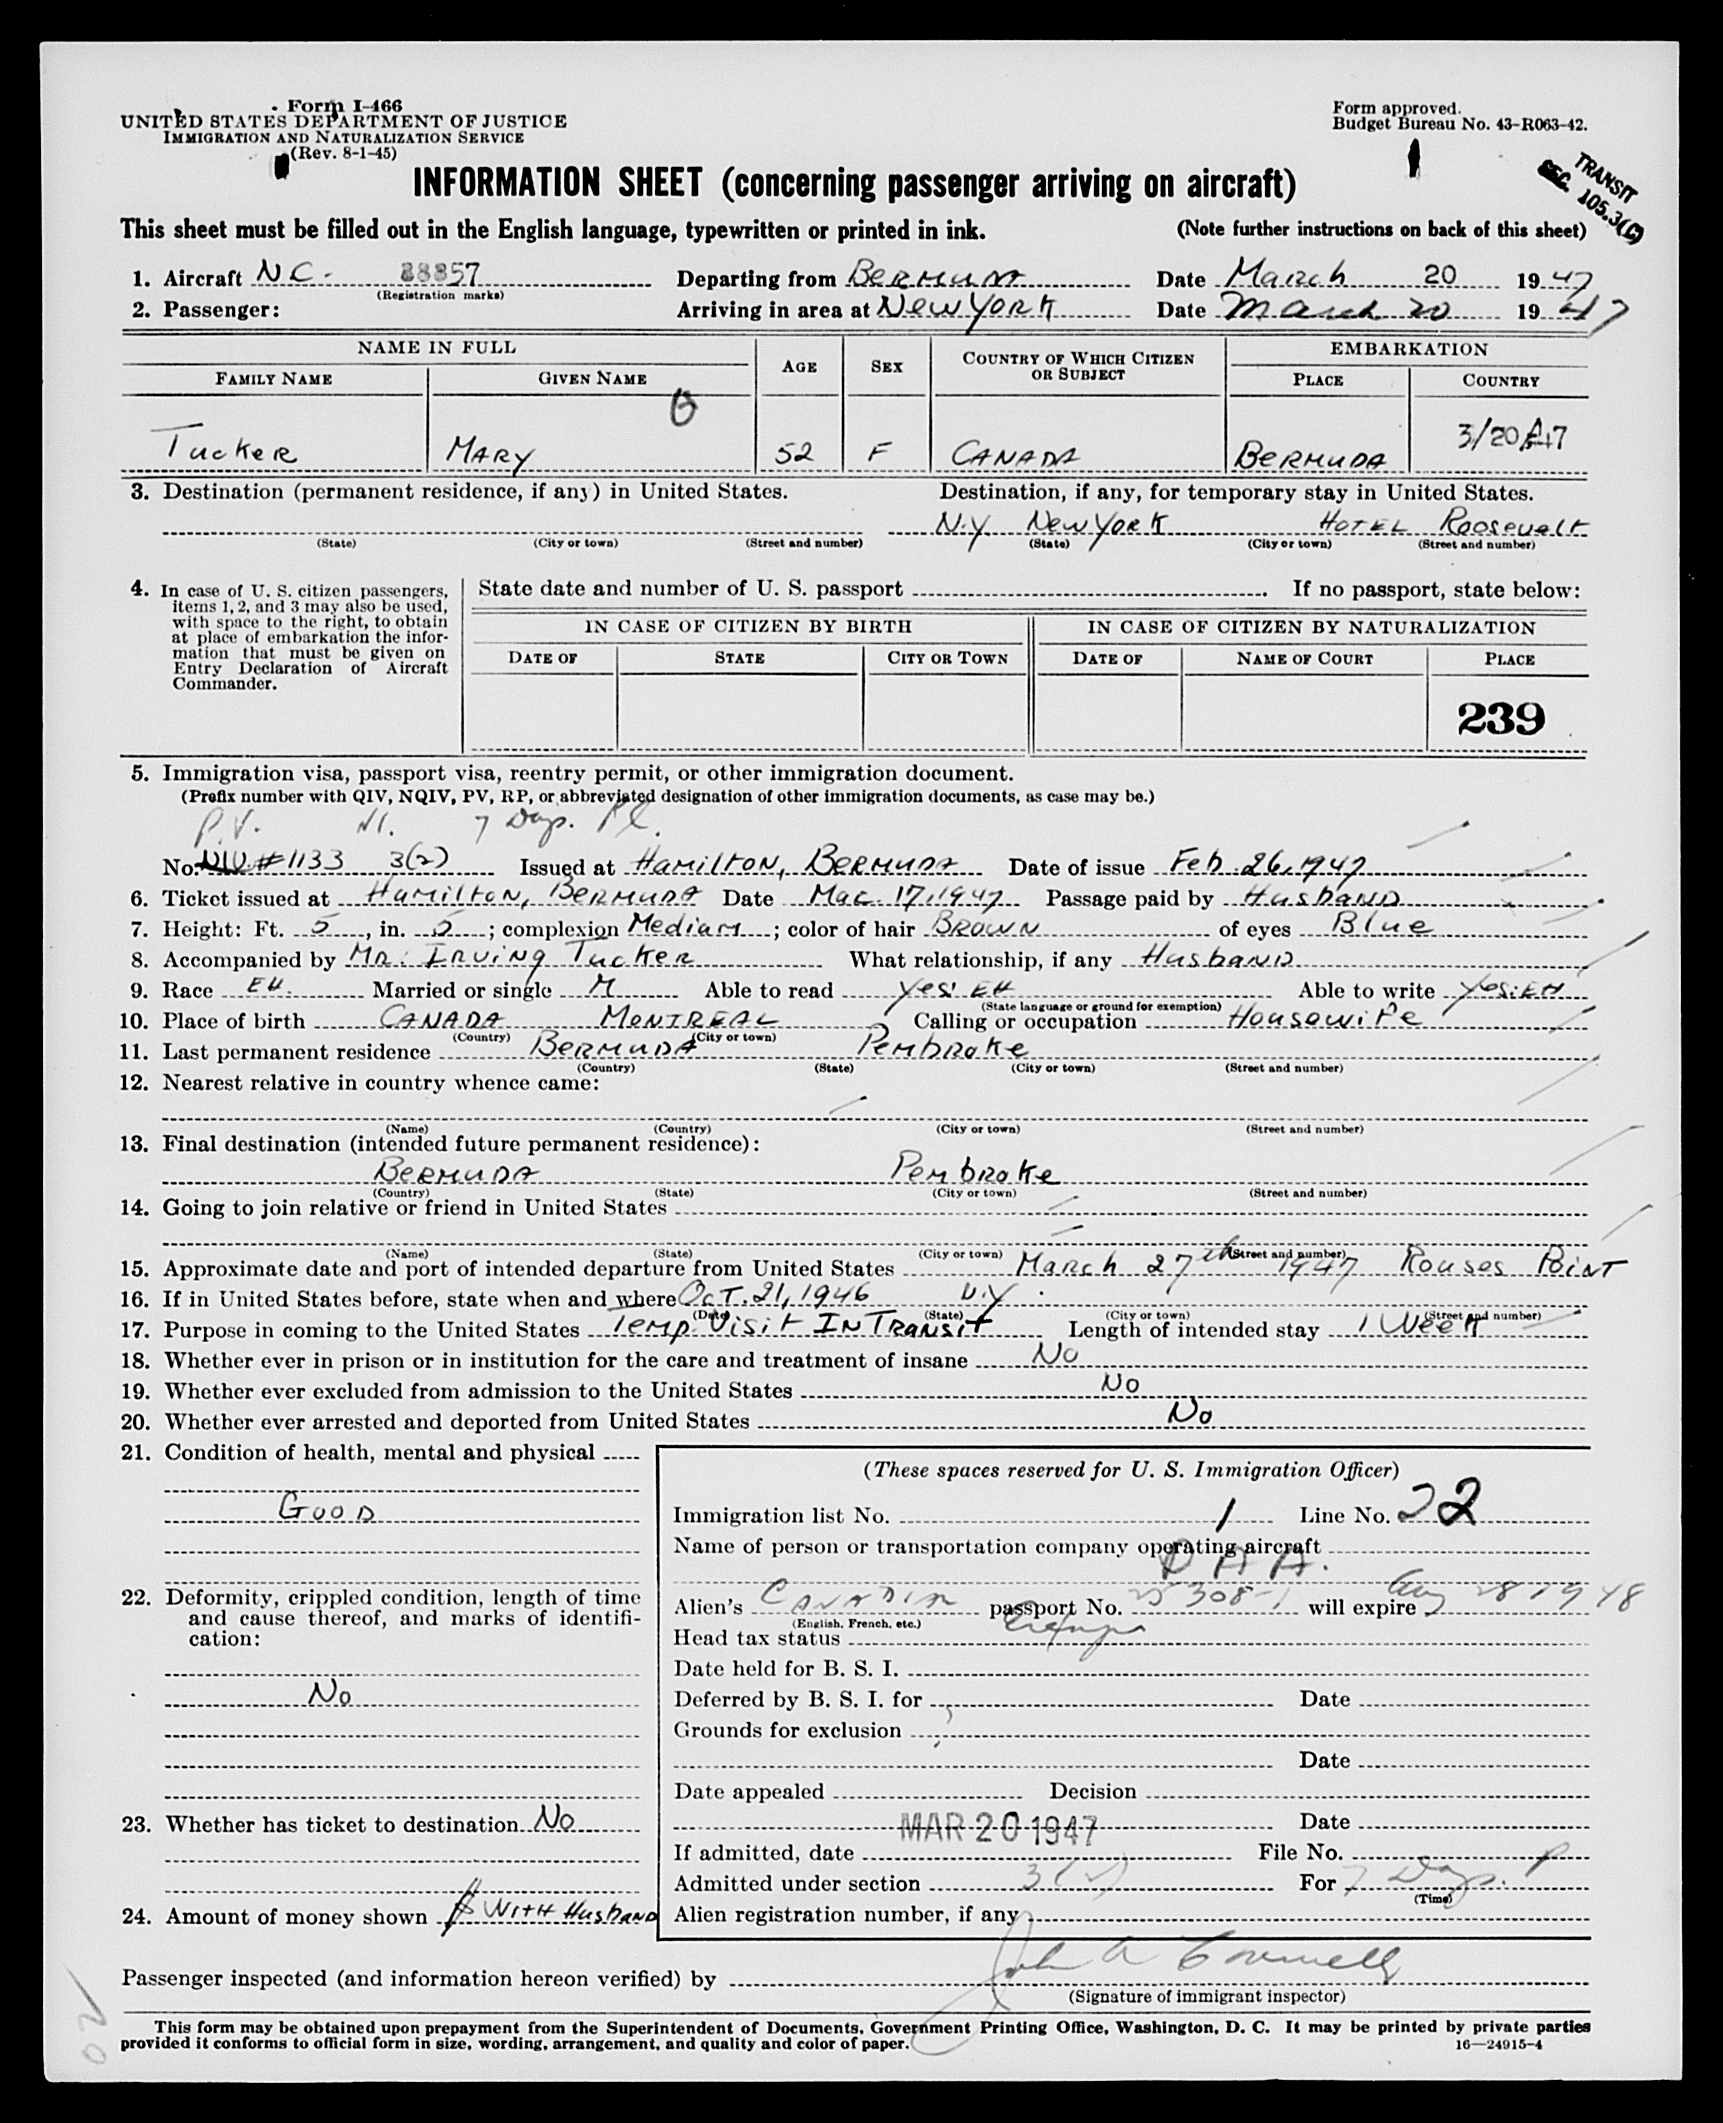 Form I-466
UNITED STATES DEPARTMENT OF JUSTICE
IMMIGRATION AND NATURALIZATION SERVICE
(Rev. 8-1-45)
Form approved.
Budget Bureau No. 43-R063-42.
TRANSIT
SEC. 105.3(C)
INFORMATION SHEET (concerning passenger arriving on aircraft)
This sheet must be filled out in the English language, typewritten or printed in ink. (Note further instructions on back of this sheet)
1. Aircraft NC- 88857 Departing from BERMUDA Date March 20 1947
(Registration marks)
2. Passenger: Arriving in area at New YORK Date March 20 1947
NAME IN FULL AGE SEX COUNTRY OF WHICH CITIZEN OR SUBJECT EMBARKATION
FAMILY NAME GIVEN NAME PLACE COUNTRY
3/20/47
Tucker MARY 52 F CANADA BERMUDA
3. Destination (permanent residence, if any) in United States. Destination, if any, for temporary stay in United States.
N.Y New York HOTEL Roosevelt
(State) (City or town) (Street and number) (State) (City or town) (Street and number)
4. In case of U. S. citizen passengers, items 1, 2, and 3 may also be used, with space to the right, to obtain at place of embarkation the information that must be given on Entry Declaration of Aircraft Commander.
State date and number of U. S. passport If no passport, state below:
IN CASE OF CITIZEN BY BIRTH IN CASE OF CITIZEN BY NATURALIZATION
DATE OF STATE CITY OR TOWN DATE OF NAME OF COURT PLACE
239
5. Immigration visa, passport visa, reentry permit, or other immigration document.
(Prefix number with QIV, NQIV, PV, RP, or abbreviated designation of other immigration documents, as case may be.)
P.V. 7 Days.
No. #1133 3(2) Issued at Hamilton, BERMUDA Date of issue Feb. 26, 1947
6. Ticket issued at Hamilton, BERMUDA Date Mar. 17, 1947 Passage paid by Husband
7. Height: Ft. 5, in. 5; complexion Medium; color of hair BROWN of eyes Blue
8. Accompanied by Mr. Irving Tucker What relationship, if any Husband
9. Race EH. Married or single M Able to read Yes: EH Able to write Yes: EH
(State language or ground for exemption)
10. Place of birth CANADA MONTREAL Calling or occupation Housewife
(Country) (City or town)
11. Last permanent residence BERMUDA Pembroke
(Country) (State) (City or town) (Street and number)
12. Nearest relative in country whence came:
(Name) (Country) (City or town) (Street and number)
13. Final destination (intended future permanent residence):
BERMUDA Pembroke
(Country) (State) (City or town) (Street and number)
14. Going to join relative or friend in United States
(Name) (State) (City or town) (Street and number)
15. Approximate date and port of intended departure from United States March 27th 1947 Rouses Point
16. If in United States before, state when and where Oct. 21, 1946 N.Y.
(Date) (State) (City or town) (Street and number)
17. Purpose in coming to the United States Temp. Visit In Transit Length of intended stay 1 Week
18. Whether ever in prison or in institution for the care and treatment of insane No
19. Whether ever excluded from admission to the United States No
20. Whether ever arrested and deported from United States No.
21. Condition of health, mental and physical
GOOD
22. Deformity, crippled condition, length of time and cause thereof, and marks of identification:
No
23. Whether has ticket to destination No
24. Amount of money shown $ WITH Husband
(These spaces reserved for U. S. Immigration Officer)
Immigration list No. 1 Line No. 22
Name of person or transportation company operating aircraft
P A A.
Alien's CANADIAN passport No. 308-1 will expire Aug 28 1948
(English, French, etc.)
Head tax status Exempt
Date held for B. S. I.
Deferred by B. S. I. for Date
Grounds for exclusion
Date
Date appealed Decision
MAR 20 1947 Date
If admitted, date File No.
Admitted under section 3(2) For 7 Days. P
(Time)
Alien registration number, if any
Passenger inspected (and information hereon verified) by John A Connelly
(Signature of immigrant inspector)
This form may be obtained upon prepayment from the Superintendent of Documents, Government Printing Office, Washington, D. C. It may be printed by private parties
provided it conforms to official form in size, wording, arrangement, and quality and color of paper.
16—24915-4